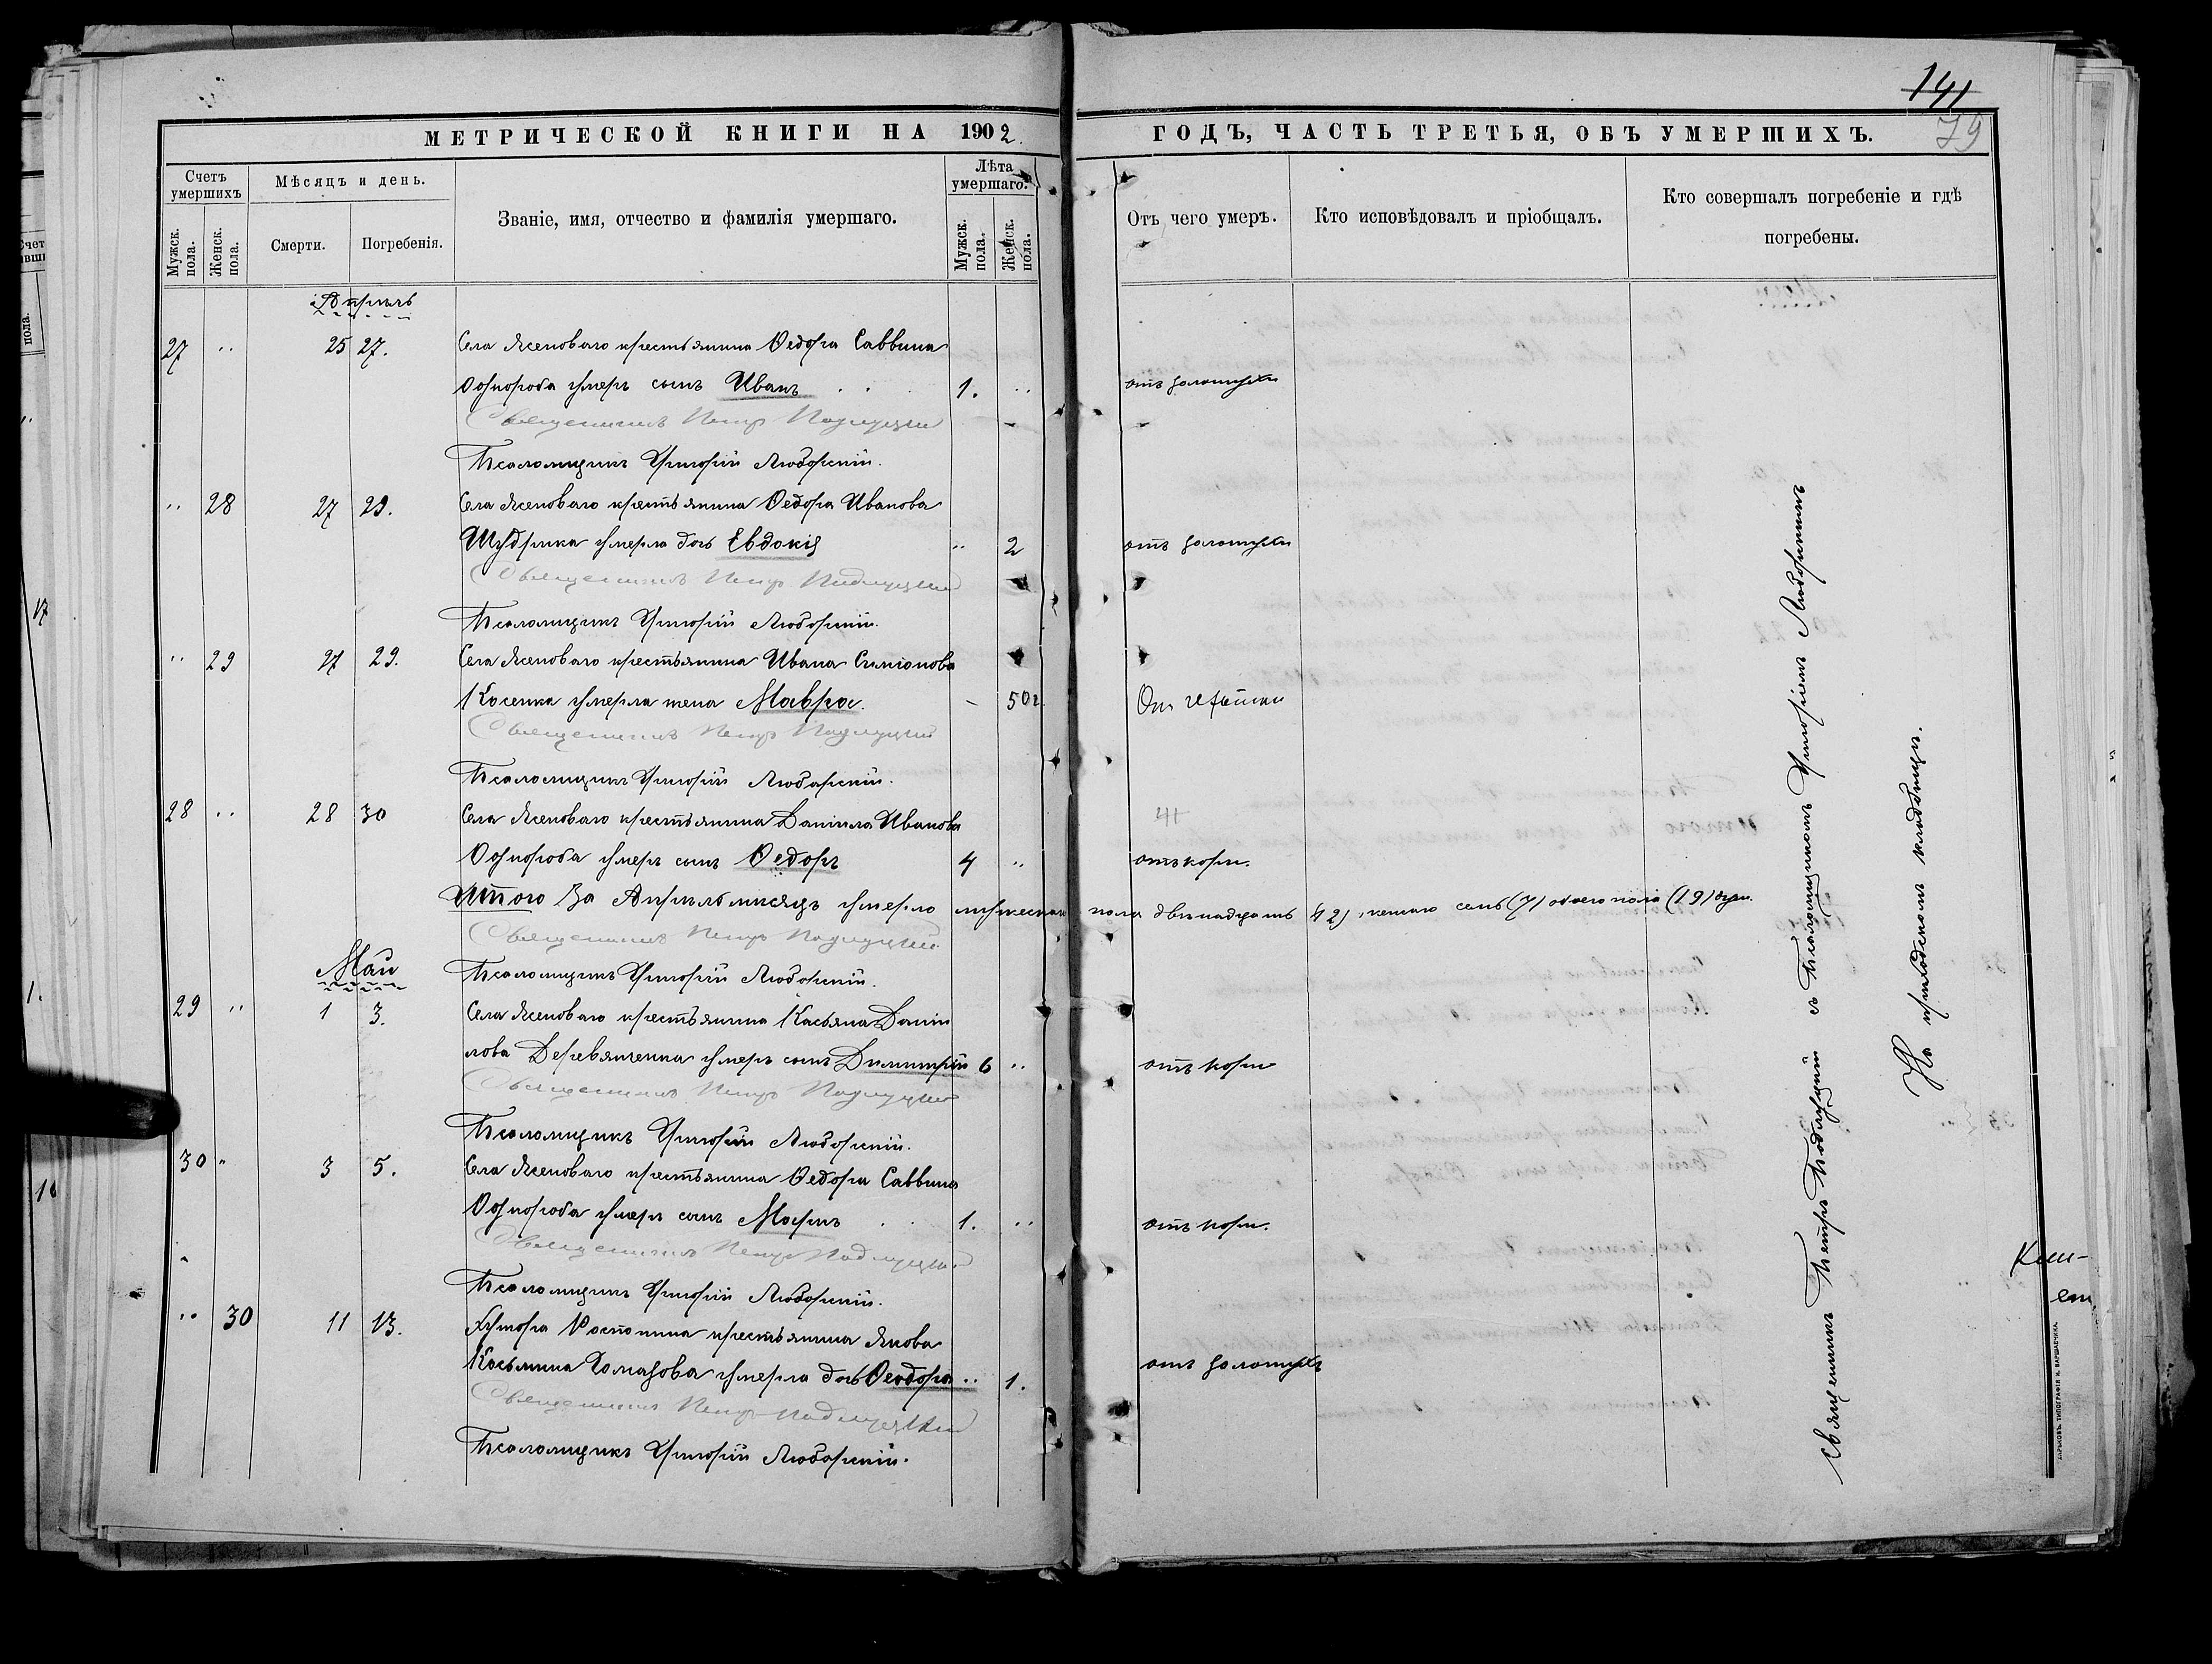 141
79
МЕТРИЧЕСКОЙ КНИГИ НА 1902.
ГОДЪ, ЧАСТЬ ТРЕТЬЯ, ОБЪ УМЕРШИХЪ.
Счетъ умершихъ
Мѣсяцъ и день.
Званіе, имя, отчество и фамилія умершаго.
Лѣта умершаго.
Отъ чего умеръ.
Кто исповѣдовалъ и пріобщалъ.
Кто совершалъ погребеніе и гдѣ
погребены.
Мужск. пола.
Женск. пола.
Смерти.
Погребенія.
Мужск. пола.
Женск. пола.
Апрѣль
27 " 25 27. Села Ясеноваго крестьянина Ѳедора Саввина
Однорога умеръ сынъ Иванъ 1. " отъ золотухи
Священникъ Петръ Подлуцкій
Псаломщикъ Григорій Любарскій.
" 28 27 29. Села Ясеноваго крестьянина Ѳедора Иванова
умерла дочь Евдокія " 2 отъ золотухи
Священникъ Петръ Подлуцкій
Псаломщикъ Григорій Любарскій.
" 29 27 29. Села Ясеноваго крестьянина Ивана Симіонова
Косенка умерла жена Мавра. - 50 г. От
Священникъ Петръ Подлуцкій
Псаломщикъ Григорій Любарскій.
28 " 28 30 Села Ясеноваго крестьянина Даніила Иванова
Однорога умеръ сынъ Ѳедоръ 4 " отъ кори.
Итого за Апрѣль мѣсяцъ умерло мужескаго пола двѣнадцать (12), женскаго семь (7) обоего пола (19) душ.
Священникъ Петръ Подлуцкій
Псаломщикъ Григорій Любарскій.
Май
29 " 1 3. Села Ясеноваго крестьянина Касьяна Дании
лова Деревянченка умеръ сынъ Димитрій 6 " отъ кори
Священникъ Петръ Подлуцкій
Псаломщикъ Григорій Любарскій.
30 " 3 5. Села Ясеноваго крестьянина Ѳедора Саввина
Однорога умеръ сынъ Маркъ 1. " отъ кори.
Священникъ Петръ Подлуцкій
Псаломщикъ Григорій Любарскій.
" 30 11 13. Хутора крестьянина Якова
Косьмина умерла дочь Ѳеодора " 1. отъ золотухи
Священникъ Петръ Подлуцкій
Псаломщикъ Григорій Любарскій.
Священникъ Петръ Подлуцкій съ Псаломщикомъ Григоріемъ Любарскимъ
На приходскомъ кладбищѣ.
ХАРЬКОВЪ. ТИПОГРАФІЯ И. ВАРШАВЧИКА.